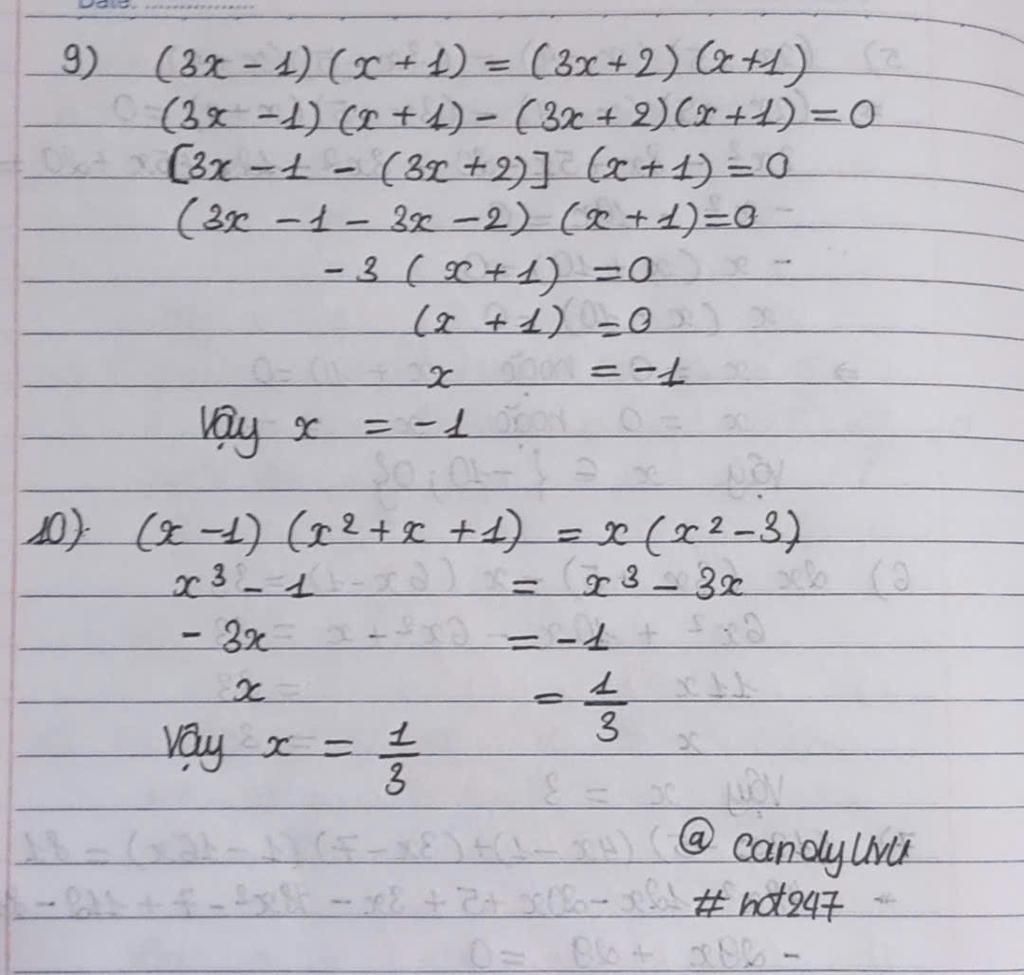 Date:
9) (3x - 1) (x + 1) = (3x + 2) (x + 1)
(3x - 1) (x + 1) - (3x + 2) (x + 1) = 0
[3x - 1 - (3x + 2)] (x + 1) = 0
(3x - 1 - 3x - 2) (x + 1) = 0
- 3 (x + 1) = 0
(x + 1) = 0
x = -1
Vậy x = -1
10) (x - 1) (x² + x + 1) = x (x² - 3)
x³ - 1 = x³ - 3x
- 3x = - 1
x = 1/3
Vậy x = 1/3
@ candyuvu
# hot247